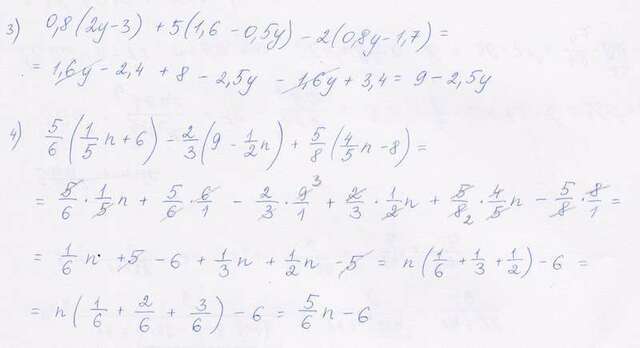 3) 0,8(2y-3) + 5(1,6 - 0,5y) - 2(0,8y-1,7) =
= 1,6y - 2,4 + 8 - 2,5y - 1,6y + 3,4 = 9 - 2,5y
4) 5/6 (1/5 n + 6) - 2/3 (9 - 1/2 n) + 5/8 (4/5 n - 8) =
= 5/6 · 1/5 n + 5/6 · 6/1 - 2/3 · 9/1 3 + 2/3 · 1/2 n + 5/8 2 · 4/5 n - 5/8 · 8/1 =
= 1/6 n + 5 - 6 + 1/3 n + 1/2 n - 5 = n (1/6 + 1/3 + 1/2) - 6 =
= n (1/6 + 2/6 + 3/6) - 6 = 5/6 n - 6